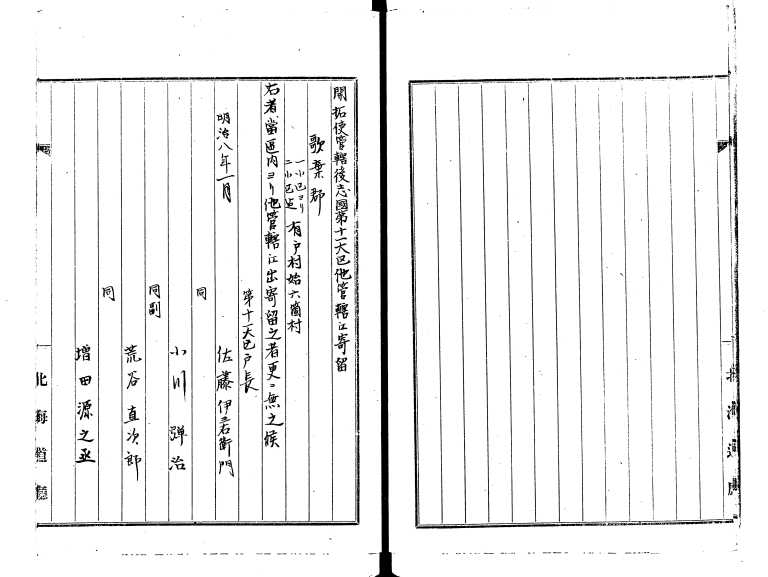 開拓使管轄後志國第十一大区他管轄江寄留
歌棄郡
一小区ヨリ
二小区迠
有戸村始六箇村
右者當區内ヨリ他管轄江出寄留之者更ニ無之候
明治八年一月
第十一大区戸長
佐藤伊三右衛門
同
小川弾治
同副
荒谷直次郎
同
増田源之丞
北海道廳